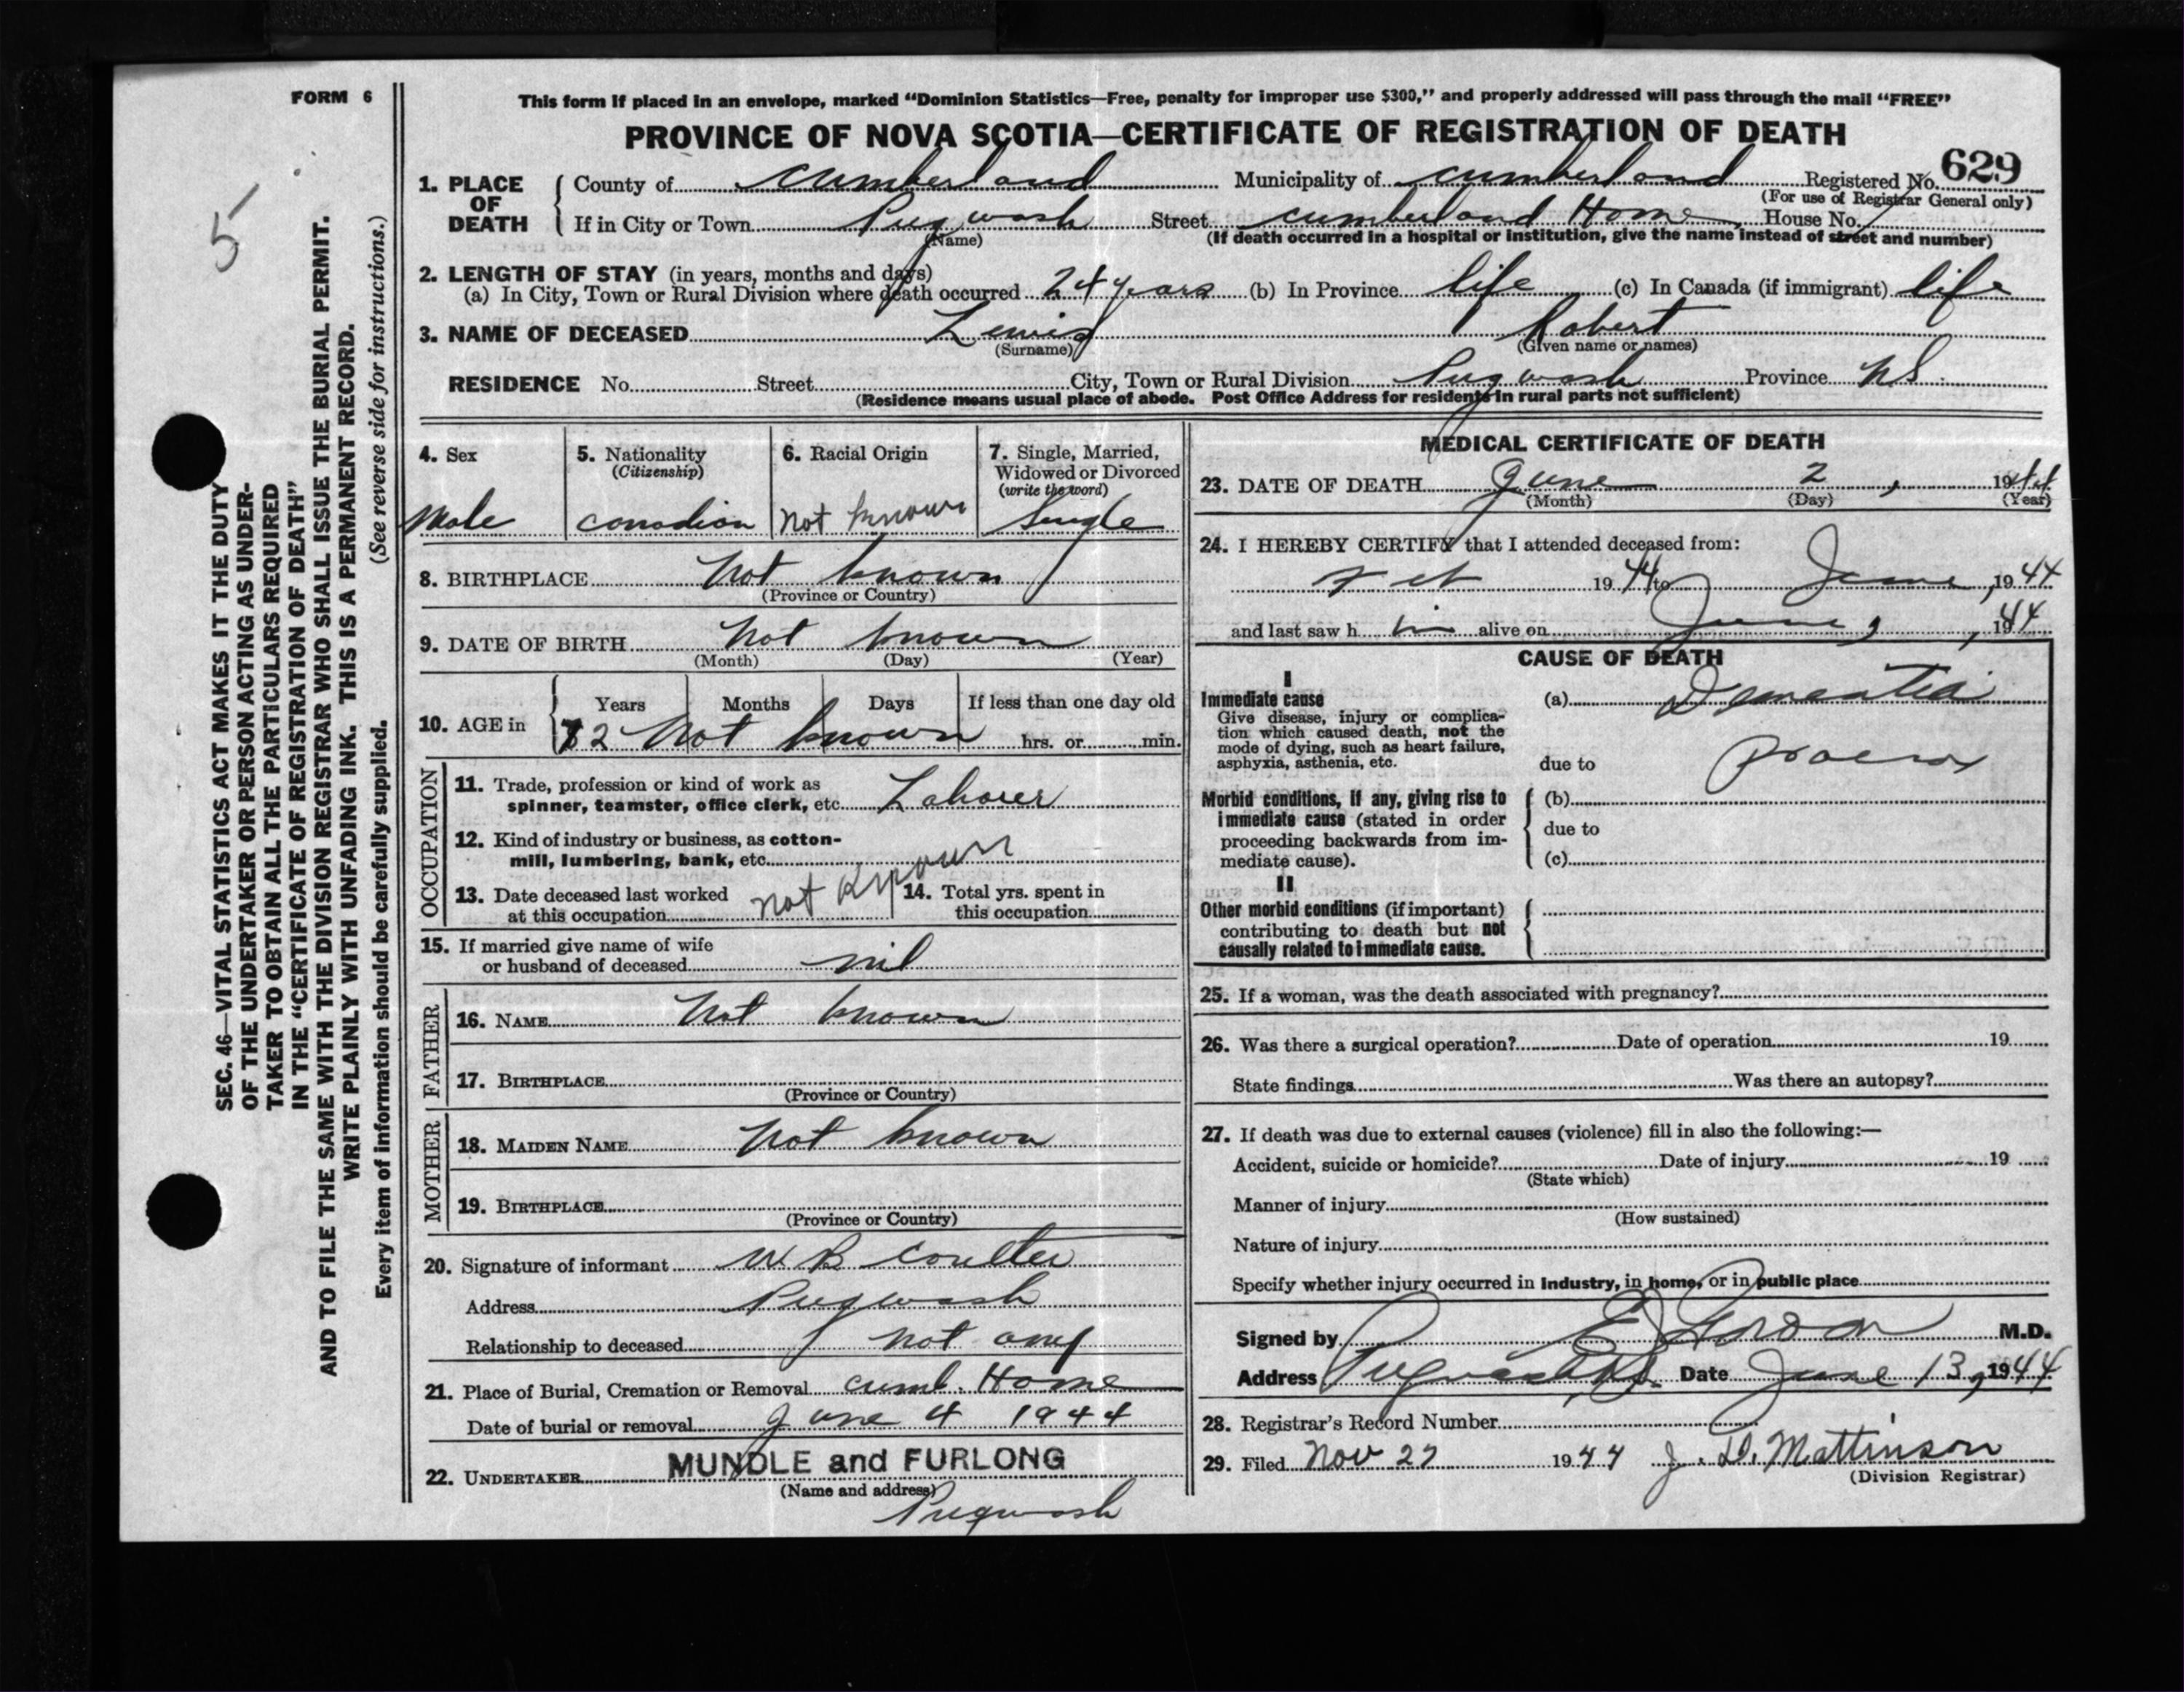 FORM 6
5
SEC. 46—VITAL STATISTICS ACT MAKES IT THE DUTY
OF THE UNDERTAKER OR PERSON ACTING AS UNDER-
TAKER TO OBTAIN ALL THE PARTICULARS REQUIRED
IN THE "CERTIFICATE OF REGISTRATION OF DEATH"
AND TO FILE THE SAME WITH THE DIVISION REGISTRAR WHO SHALL ISSUE THE BURIAL PERMIT.
WRITE PLAINLY WITH UNFADING INK. THIS IS A PERMANENT RECORD.
Every item of information should be carefully supplied. (See reverse side for instructions.)
This form if placed in an envelope, marked "Dominion Statistics—Free, penalty for improper use $300," and properly addressed will pass through the mail "FREE"
PROVINCE OF NOVA SCOTIA—CERTIFICATE OF REGISTRATION OF DEATH
1. PLACE OF DEATH
County of cumberland Municipality of cumberland Registered No. 629
(For use of Registrar General only)
If in City or Town Pugwash Street cumberland Home House No.
(Name) (If death occurred in a hospital or institution, give the name instead of street and number)
2. LENGTH OF STAY (in years, months and days)
(a) In City, Town or Rural Division where death occurred 24 years (b) In Province life (c) In Canada (if immigrant) life
3. NAME OF DECEASED Lewis Robert
(Surname) (Given name or names)
RESIDENCE No. Street City, Town or Rural Division Pugwash Province NS.
(Residence means usual place of abode. Post Office Address for residents in rural parts not sufficient)
4. Sex
Male
5. Nationality
(Citizenship)
canadian
6. Racial Origin
Not known
7. Single, Married,
Widowed or Divorced
(write the word)
Single
8. BIRTHPLACE Not known
(Province or Country)
9. DATE OF BIRTH Not known
(Month) (Day) (Year)
10. AGE in
Years Months Days If less than one day old
72 Not known hrs. or min.
OCCUPATION
11. Trade, profession or kind of work as
spinner, teamster, office clerk, etc. Laborer
12. Kind of industry or business, as cotton-
mill, lumbering, bank, etc.
13. Date deceased last worked
at this occupation not known
14. Total yrs. spent in
this occupation
15. If married give name of wife
or husband of deceased nil
FATHER
16. NAME Not known
17. BIRTHPLACE
(Province or Country)
MOTHER
18. MAIDEN NAME Not known
19. BIRTHPLACE
(Province or Country)
20. Signature of informant W B Coulter
Address Pugwash
Relationship to deceased not any
21. Place of Burial, Cremation or Removal cumb. Home
Date of burial or removal June 4 1944
22. UNDERTAKER MUNDLE and FURLONG
(Name and address)
Pugwash
MEDICAL CERTIFICATE OF DEATH
23. DATE OF DEATH June 2, 1944
(Month) (Day) (Year)
24. I HEREBY CERTIFY that I attended deceased from:
1944 to June, 1944
and last saw h im alive on June, 1944
CAUSE OF DEATH
I
Immediate cause
Give disease, injury or complica-
tion which caused death, not the
mode of dying, such as heart failure,
asphyxia, asthenia, etc.
(a) Dementia
due to Praecox
Morbid conditions, if any, giving rise to
immediate cause (stated in order
proceeding backwards from im-
mediate cause).
(b)
due to
(c)
II
Other morbid conditions (if important)
contributing to death but not
causally related to immediate cause.
25. If a woman, was the death associated with pregnancy?
26. Was there a surgical operation? Date of operation 19
State findings Was there an autopsy?
27. If death was due to external causes (violence) fill in also the following:—
Accident, suicide or homicide? Date of injury 19
(State which)
Manner of injury
(How sustained)
Nature of injury
Specify whether injury occurred in Industry, in home, or in public place
Signed by M.D.
Address Pugwash, NS. Date June 13, 1944
28. Registrar's Record Number
29. Filed Nov 27 1944 J. D. Mattinson
(Division Registrar)